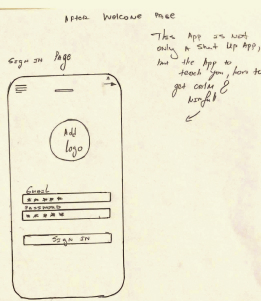 After Welcome Page
Sign In Page
This App is not
only a Shut Up App,
the App to
teach you, how to
get calm &
Add
logo
Email
*****
Password
*****
Sign In